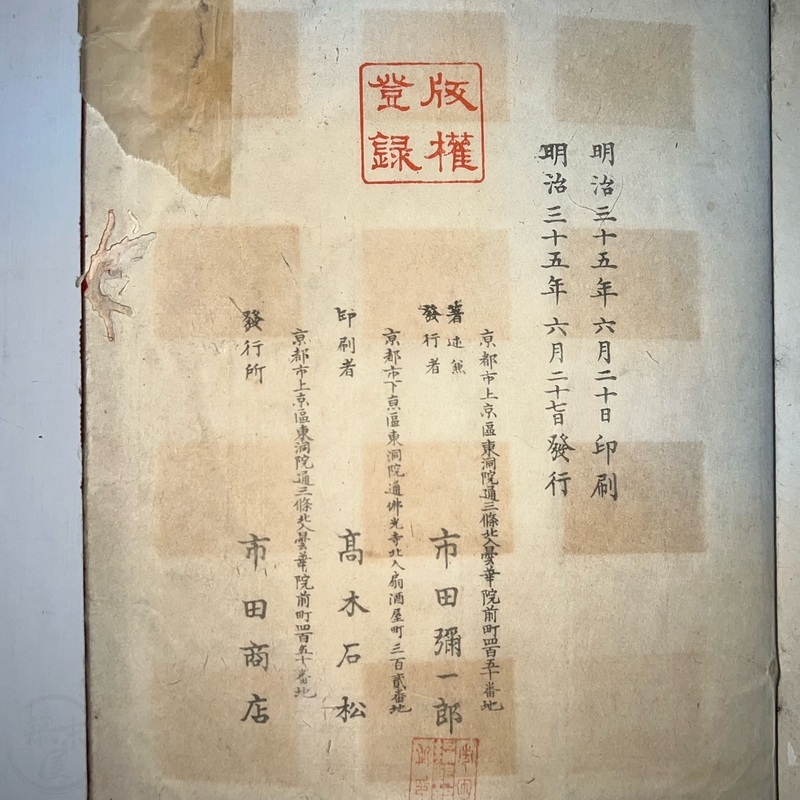 版權
登錄
明治三十五年六月二十日印刷
明治三十五年六月二十七日發行
京都市上京區東洞院通三條北入曇華院前町四百五十番地
著述兼
發行者 市田彌一郎
京都市下京區東洞院通佛光寺北入扇酒屋町三百貳番地
印刷者 高木石松
京都市上京區東洞院通三條北入曇華院前町四百五十番地
發行所 市田商店